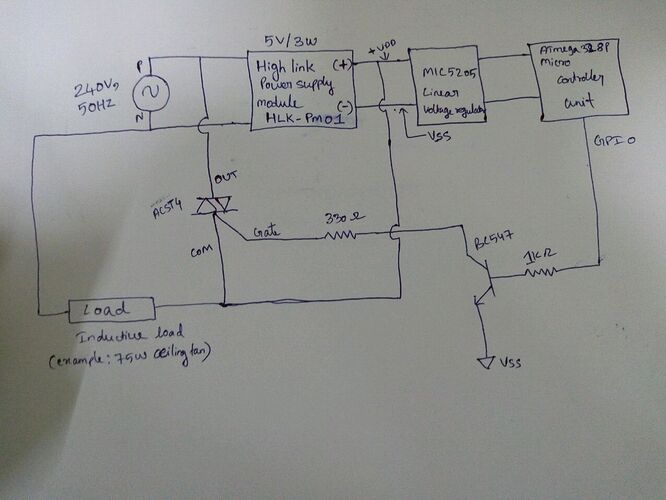 5V/3W
P
240V,
50HZ
N
High link (+)
Power supply
module (-)
HLK-PM01
+VDD
MIC5205
Linear
Voltage regulator
VSS
ATmega328P
Micro
Controller
unit
GPIO
OUT
ACST4
COM
Gate
330Ω
BC547
1KΩ
VSS
Load
Inductive load
(example: 75W ceiling fan)